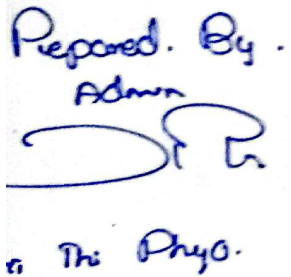 Prepared. By.
Admin
Thi Phyo.